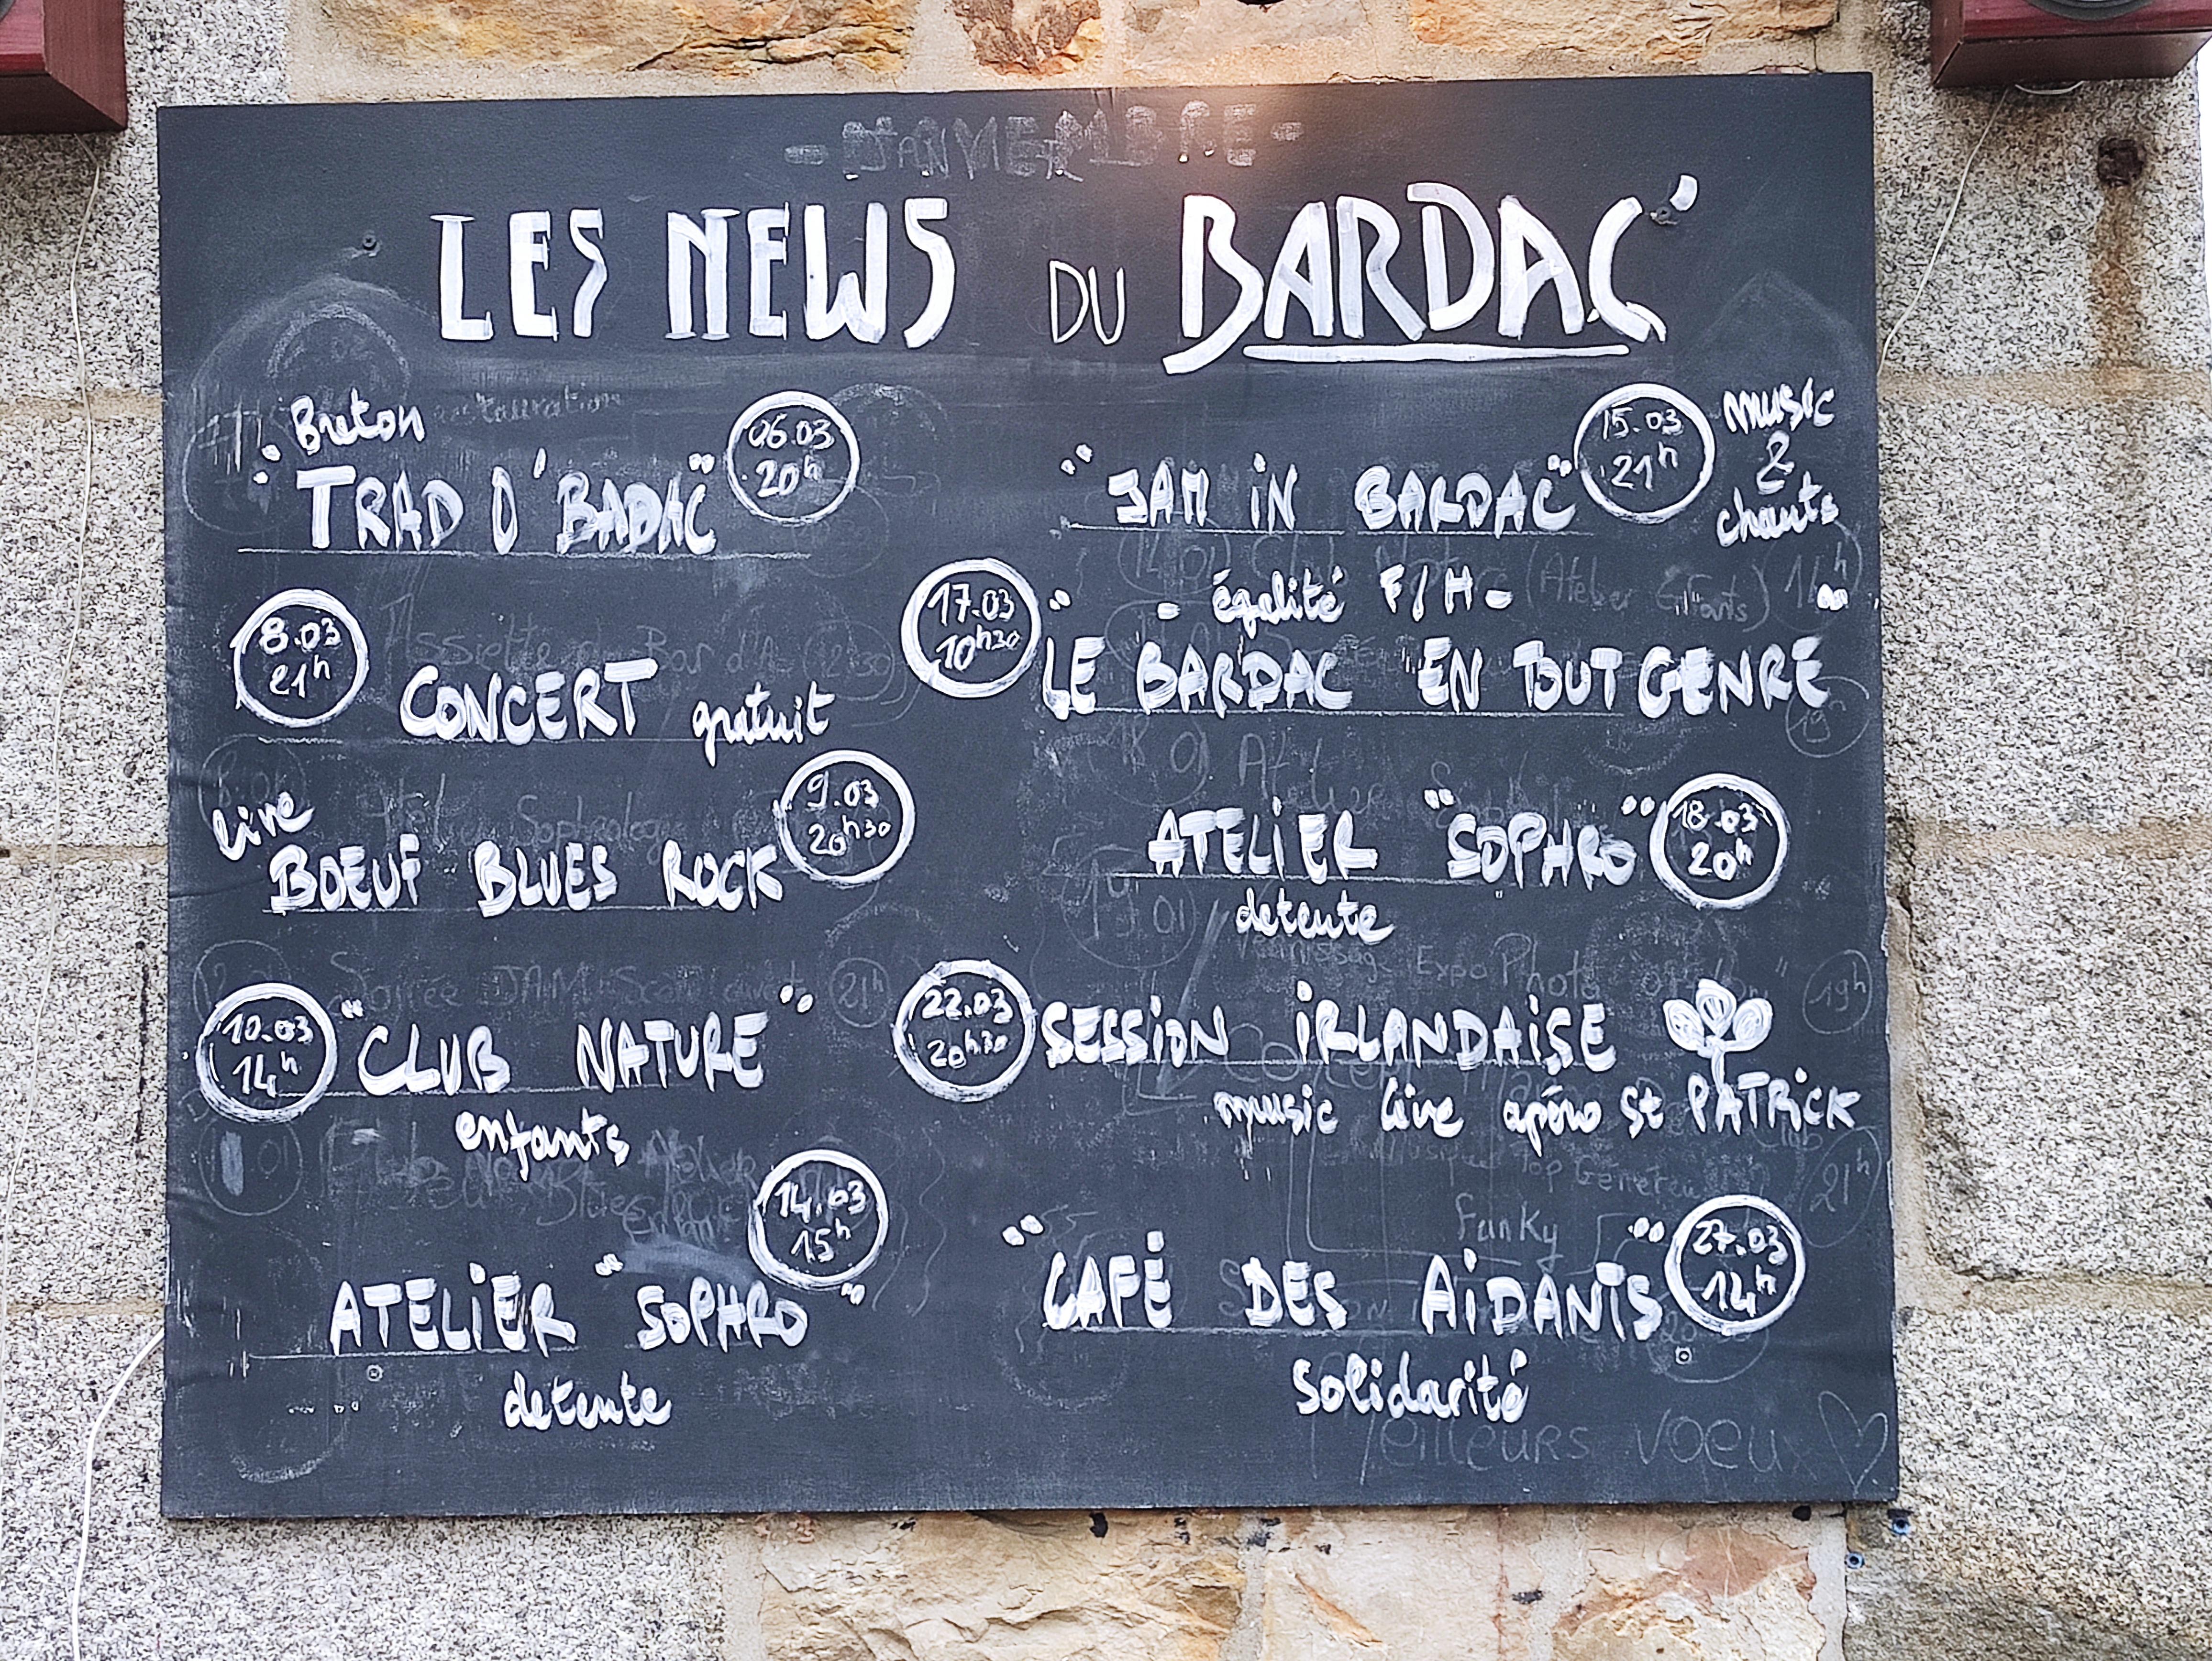 LES NEWS DU BARDAC'
Breton
"TRAD O'BADAC"
06.03
20h
8.03
21h
CONCERT gratuit
live
BOEUF BLUES ROCK
9.03
20h30
10.03
14h
"CLUB NATURE"
enfants
14.03
15h
ATELIER "SOPHRO"
detente
"JAM IN BARDAC"
15.03
21h
music
&
chants
17.03
10h30
"- égalité F/H -
LE BARDAC EN TOUT GENRE"
ATELIER "SOPHRO"
18.03
20h
detente
22.03
20h30
SESSION IRLANDAISE
music live apéro St PATRICK
Funky
"CAFÉ DES AIDANTS"
27.03
14h
Solidarité
Meilleurs voeux